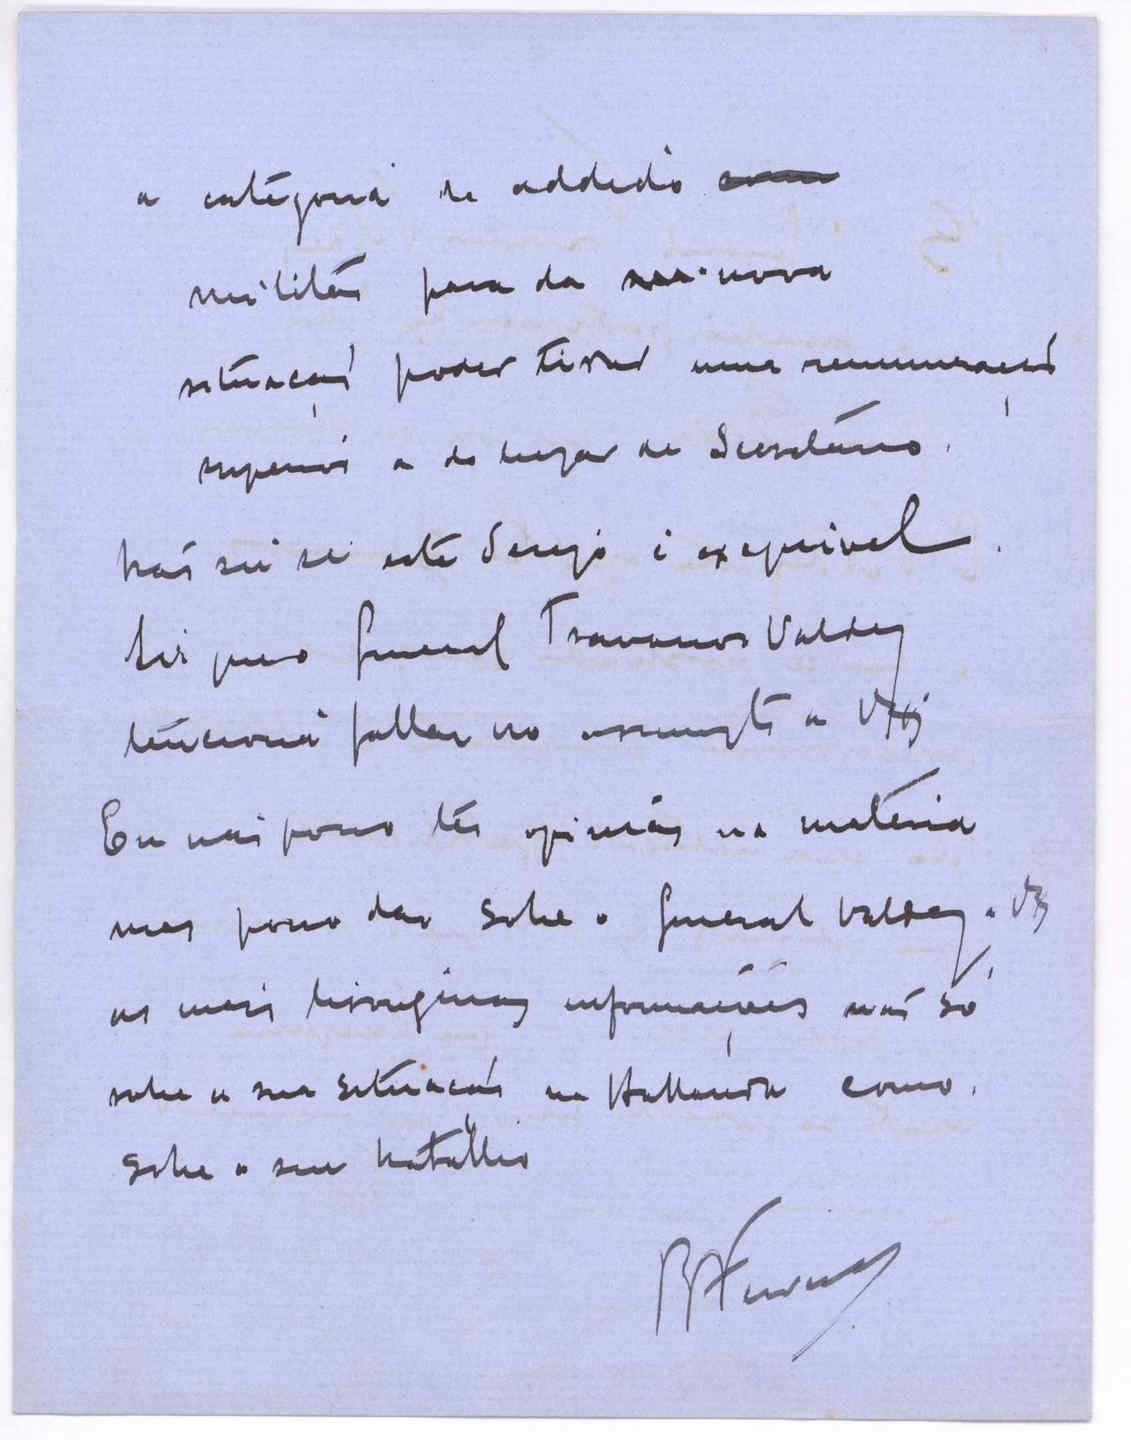 a categoria de addido
militar para da sua nova
situação poder tirar uma remuneração
superior a do lugar de Secretario.
Não sei se este desejo é exequivel.
Sei que o General Travassos Valdez
tenciona fallar no assumpto a VExª
Eu não posso ter opinião na materia
mas posso dar sobre o General Valdez a VExª
as mais lisongeiras informações não só
sobre a sua situação na Hollanda como
sobre o seu trabalho